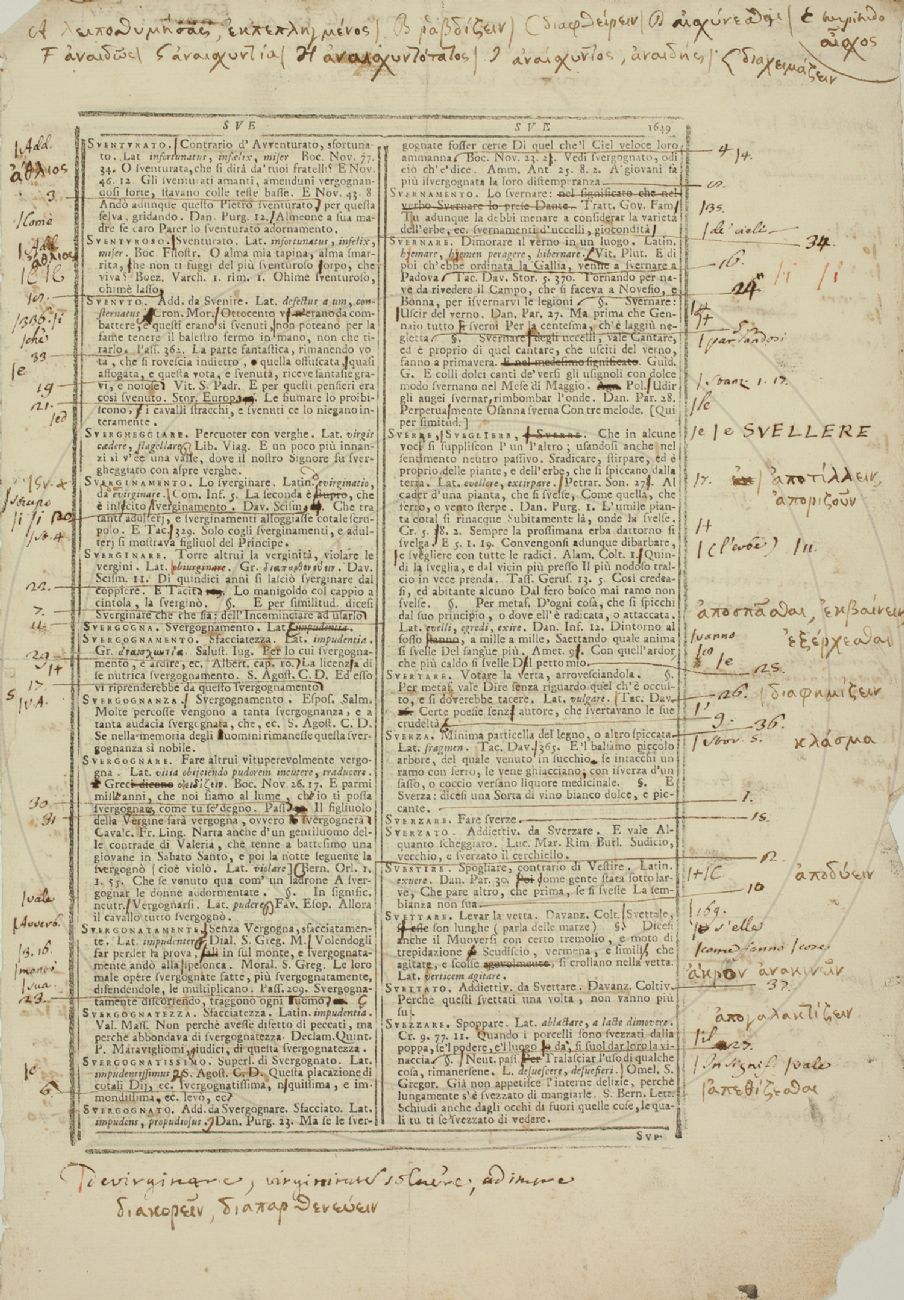 Α λειποθυμήσας, ἐκπεπληγμένος | Β ῥαβδίζειν | C διαφθείρειν | D αἰσχύνεσθαι | E
αἶσχος
F ἀναιδῶς | G ἀναισχυντία | H ἀναισχυντότατος | I ἀναίσχυντος, ἀναιδής | διαχειμάζειν
SVE
SVE 1649
SVENTURATO. Contrario d' Avventurato, sfortuna-
to. Lat infortunatus, infelix, miser Boc. Nov. 77.
34. O sventurata, che si dirà da' tuoi fratelli? E Nov.
46. 12. Gli sventurati amanti, amenduni vergognan-
dosi forte, stavano colle teste basse. E Nov. 43. 8
Andò adunque questo Pietro sventurato, per questa
selva, gridando. Dan. Purg. 12. Almeone a sua ma-
dre fe caro Parer lo sventurato adornamento.
SVENTUROSO. Sventurato. Lat. infortunatus, infelix,
miser. Boc. Filostr. O alma mia tapina, alma smar-
rita, che non ti fuggi del più sventuroso corpo, che
viva? Boez. Varch. 1. rim. 1. Ohimè sventuroso,
ohimè lasso,
SVENUTO. Add. da Svenire. Lat. defectus a um, con-
sternatus. Cron. Mor. Ottocento erano da com-
battere, e questi erano sì svenuti, non poteano per la
fame tenere il balestro fermo in mano, non che ti-
rarlo. Pass. 362. La parte fantastica, rimanendo vo
ta, che si rovescia indietro, e quella offuscata, quasi
affogata, e questa vota, e svenuta, riceve fantasie gra-
vi, e noiose. Vit. S. Padr. E per questi pensieri era
così svenuto. Stor. Europ. Le fiumare lo proibi-
scono, i cavalli stracchi, e svenuti ce lo niegano in-
teramente.
SVERGHEGGIARE. Percuoter con verghe. Lat. virgis
cædere, flagellare. Lib. Viag. E un poco più innan-
zi vi v'è una valle, dove il nostro Signore fu sver-
gheggiato con aspre verghe.
SVERGINAMENTO. Lo sverginare. Latin. evirginatio,
da evirginare. Com. Inf. 5. La seconda è stupro, che
è inlicito sverginamento. Dav. Scism. Che tra
tanti adulterj, e sverginamenti alloggiasse cotale scru-
polo. E Tac. 329. Solo cogli sverginamenti, e adul-
terj si mostrava figliuol del Principe.
SVERGINARE. Torre altrui la verginità, violare le
vergini. Lat. obvirginare. Gr. διαπαρθενεύειν. Dav.
Scism. 11. Di quindici anni si lasciò sverginare dal
coppiere. E Tacit. Lo manigoldo col cappio a
cintola, la sverginò. §. E per similitud. dicesi
Sverginare che che sia: dell'Incominciare ad usarlo
SVERGOGNA. Svergognamento. Lat. impudentia.
SVERGOGNAMENTO. Sfacciatezza. Lat. impudentia.
Gr. ἀναισχυντία. Salust. Iug. Per lo cui svergogna-
mento, e ardire, ec. Albert. cap. 10. La licenza di
se nutrica svergognamento. S. Agost. C. D. Ed esso
vi riprenderebbe da questo svergognamento
SVERGOGNANZA. Svergognamento. Espos. Salm.
Molte percosse vengono a tanta svergognanza, e a
tanta audacia svergognata, che, ec. S. Agost. C. D.
Se nella memoria degli uomini rimanesse questa sver-
gognanza sì nobile.
SVERGOGNARE. Fare altrui vituperevolmente vergo-
gna. Lat. vitia obijciendo pudorem incutere, traducere.
Greci dicono ὀνειδίζειν. Boc. Nov. 26. 17. E parmi
mill'anni, che noi siamo al lume, ch'io ti possa
svergognare, come tu se' degno. Pass. Il figliuolo
della Vergine farà vergogna, ovvero svergognerà
Cavalc. Fr. Ling. Narra anche d'un gentiluomo del-
le contrade di Valeria, che tenne a battesimo una
giovane in Sabato Santo, e poi la notte seguente la
svergognò (cioè violò. Lat. violare) Bern. Orl. 1.
1. 55. Che se venuto qua com' un ladrone A sver-
gognar le donne addormentate. §. In signific.
neutr. Vergognarsi. Lat. pudere. Fav. Esop. Allora
il cavallo tutto svergognò.
SVERGOGNATAMENTE. Senza Vergogna, sfacciatamen-
te. Lat. impudenter. Dial. S. Greg. M. Volendogli
far perder la prova, salì in sul monte, e svergognata-
mente andò alla spelonca. Moral. S. Greg. Le loro
male opere svergognate fatte, più svergognatamente,
difendendole, le multiplicano. Pass. 209. Svergogna-
tamente discorrendo, traggono ogni uomo
SVERGOGNATEZZA. Sfacciatezza. Latin. impudentia.
Val. Mass. Non perchè avesse difetto di peccati, ma
perchè abbondava di svergognatezza. Declam. Quint.
P. Maravigliomi, giudici, di questa svergognatezza.
SVERGOGNATISSIMO. Superl. di Svergognato. Lat.
impudentissimus. S. Agost. C. D. Questa placazione di
cotali Dij, ec. svergognatissima, nequissima, e im-
mondissima, ec. levò, ec.
SVERGOGNATO. Add. da Svergognare. Sfacciato. Lat.
impudens, propudiosus. Dan. Purg. 23. Ma se le sver-
gognate fosser certe Di quel che'l Ciel veloce loro
ammanna. Boc. Nov. 23. 2. Vedi svergognato, odi
ciò ch'e' dice. Amm. Ant 25. 8. 2. A' giovani fa
più isvergognata la loro distempranza
SVERNAMENTO. Lo svernare: nel significato che nel
verbo Svernare lo prese Dante. Tratt. Gov. Fam.
Tu adunque la debbi menare a considerar la varietà
dell'erbe, ec. svernamenti d'uccelli, giocondità
SVERNARE. Dimorare il verno in un luogo. Latin.
hjemare, hjemen peragere, hibernare. Vit. Plut. E di
poi ch'ebbe ordinata la Gallia, venne a svernare a
Padova. Tac. Dav. Stor. 5. 370. Tornando per na-
ve da rivedere il Campo, che si faceva a Novesio, e
Bonna, per isvernarvi le legioni. §. Svernare:
Uscir del verno. Dan. Par. 27. Ma prima che Gen-
naio tutto si sverni Per la centesma, ch'è laggiù ne-
gletta. §. Svernare degli uccelli, vale Cantare,
ed è proprio del quel cantare, che usciti del verno,
fanno a primavera. E nel medesimo significato. Guid.
G. E colli dolci canti de' versi gli usignoli con dolce
modo svernano nel Mese di Maggio. Pol. Udir
gli augei svernar, rimbombar l'onde. Dan. Par. 28.
Perpetualmente Osanna sverna Con tre melode. [Qui
per similitud.]
SVERRE, SVEGLIERE, e SVERRE. Che in alcune
voci si suppliscon l'un l'altro, usandosi anche nel
sentimento neutro passivo. Sradicare, stirpare, ed è
proprio delle piante, e dell'erbe, che si spiccano dalla
terra. Lat. evellere, extirpare. Petrar. Son. 27. Al
cader d'una pianta, che si svelse, Come quella, che
ferro, o vento sterpe. Dan. Purg. 1. L'umile pian-
ta cotal si rinacque Subitamente là, onde la svelse.
Cr. 5. 8. 2. Sempre la prossimana erba dattorno si
svelga. E 5. 1. 19. Convengonsi adunque dibarbare,
e svegliere con tutte le radici. Alam. Colt. 1. Quin-
di la sveglia, e dal vicin più presso Il più nodoso tral-
cio in vece prenda. Tass. Gerus. 13. 5. Così credea-
si, ed abitante alcuno Dal fero bosco mai ramo non
svelse. §. Per metaf. D'ogni cosa, che si spicchi
dal suo principio, o dove ell'è radicata, o attaccata.
Lat. evelli, egredi, exire. Dan. Inf. 12. Dintorno al
fosso stanno, a mille a mille, Saettando quale anima
si svelle Del sangue più. Amet. 9. Con quell'ardor
che più caldo si svelle Di petto mio.
SVERTARE. Votare la verta, arrovesciandola. §.
Per metaf. vale Dire senza riguardo quel ch'è occul-
to, e si dovrebbe tacere. Lat. vulgare. Tac. Dav.
Certe poesie senz' autore, che svertavano le sue
crudeltà
SVERZA. Minima particella del legno, o altro spiccata.
Lat. fragmen. Tac. Dav. 365. E'l balsimo piccolo
arbore, del quale venuto in succhio, se intacchi un
ramo con ferro, le vene ghiacciano; con isverza d'un
sasso, o coccio versano liquore medicinale. §. E
Sverza: dicesi una Sorta di vino bianco dolce, e pic-
cante.
SVERZARE. Fare sverze.
SVERZATO. Addiettiv. da Sverzare. E vale Al-
quanto scheggiato. Luc. Mar. Rim. Burl. Sudicio,
vecchio, e sverzato il cerchiello.
SVESTIRE. Spogliare, contrario di Vestire. Latin.
exuere. Dan. Par. 30. Poi come gente stata sotto lar-
ve, Che pare altro, che prima, se si sveste La sem-
bianza non sua
SVETTARE. Levar la vetta. Davanz. Colt. Svettale,
son lunghe (parla delle marze) §. Dicesi
anche il Muoversi con certo tremolio, e moto di
trepidazione. Scudiscio, vermena, e simili, che
agitate, e scosse agevolmente, si crollano nella vetta.
Lat. verticem agitare.
SVETTATO. Addiettiv. da Svettare. Davanz. Coltiv.
Perchè questi svettati una volta, non vanno più
su.
SVEZZARE. Spoppare. Lat. ablactare, a lacte dimovere.
Cr. 9. 77. 11. Quando i porcelli sono svezzati dalla
poppa, se'l podere, e'l luogo lo dà, si suol dar loro la vi-
naccia. §. Neut. pass. Per Tralasciar l'uso di qualche
cosa, rimanersene. L. desuescere, desuefieri. Omel. S.
Gregor. Già non appetisce l'interne delizie, perchè
lungamente s'è svezzato di mangiarle. S. Bern. Lett.
Schiudi anche dagli occhi di fuori quelle cose, le qua-
li tu ti se' svezzato di vedere.
SVP-
Add.
ἄθλιος
3.
Come
Add
ἄθλιος
che
33
19
21.
ed
22.
7.
29
17
30
31
vale
23.
6
4 14.
de' cieli
34.
16.
24
Stanz. 1. 17.
le
e e SVELLERE
17. ἀποτίλλειν
ἀποριζοῦν
(l'erbe) 11
ἀποσπᾶσθαι, ἐκβαίνειν
ἐξέρχεσθαι
25.
26. διαφημίζειν
9. 36.
Stor. 5. κλάσμα
1.
18.
12.
ἀποδύειν
10
169.
s'elle
come
ἄκρον ἀνακινεῖν
37.
ἀπογαλακτίζειν
27.
In signif. vale
ἀπεθίζεσθαι
devirginare, virginitatem solvere, adimere
διακορεῖν, διαπαρθενεύειν